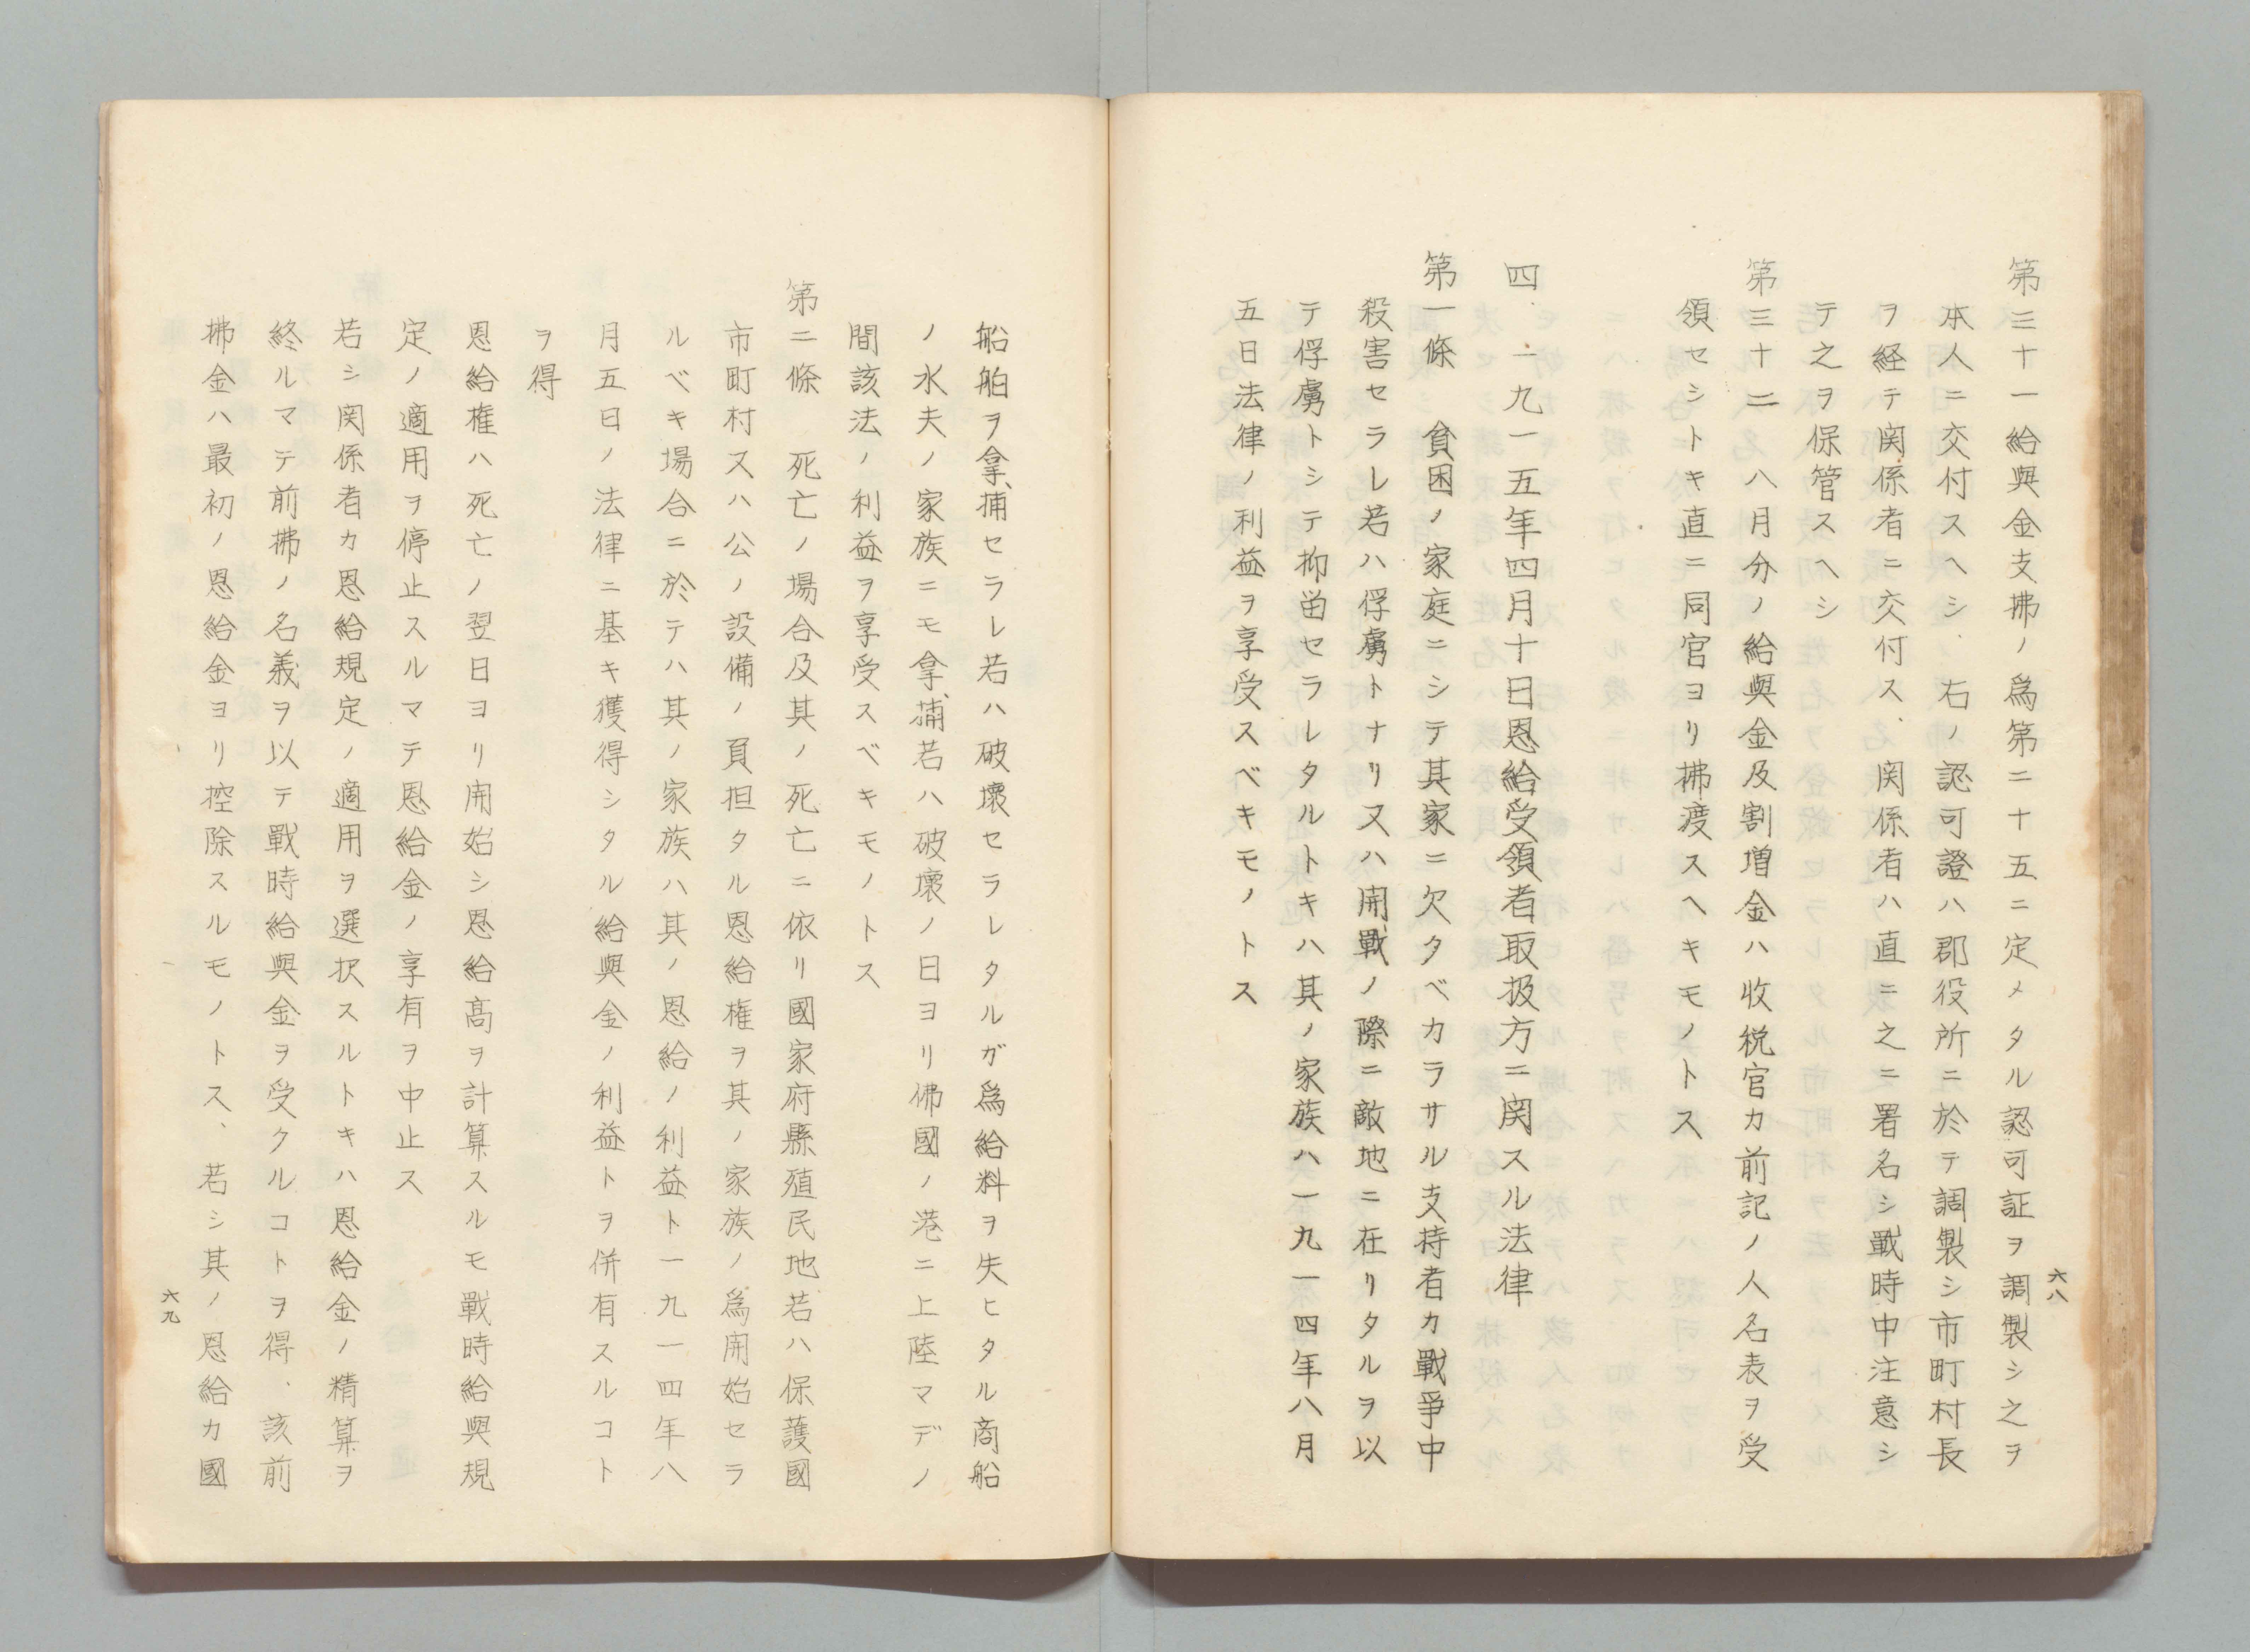 第三十一給與金支拂ノ爲第二十五ニ定メタル認可証ヲ調製シ之ヲ
本人ニ交付スヘシ、右ノ認可證ハ郡役所ニ於テ調製シ市町村長
ヲ経テ関係者ニ交付ス、関係者ハ直ニ之ニ署名シ戰時中注意シ
テ之ヲ保管スヘシ
第三十二　八月分ノ給與金及割増金ハ收税官カ前記ノ人名表ヲ受
領セシトキ直ニ同官ヨリ拂渡スヘキモノトス
四.一九一五年四月十日恩給受領者取扱方ニ関スル法律
第一條　貧困ノ家庭ニシテ其家ニ欠タベカラサル支持者カ戰爭中
殺害セラレ若ハ俘虜トナリ又ハ開戰ノ際ニ敵地ニ在リタルヲ以
テ俘虜トシテ抑畄セラレタルトキハ其ノ家族ハ一九一四年八月
五日法律ノ利益ヲ享受スベキモノトス
六八
船舶ヲ拿捕セラレ若ハ破壞セラレタルガ爲給料ヲ失ヒタル商船
ノ水夫ノ家族ニモ拿捕若ハ破壞ノ日ヨリ佛國ノ港ニ上陸マデノ
間該法ノ利益ヲ享受スベキモノトス
第二條　死亡ノ場合及其ノ死亡ニ依リ國家府縣殖民地若ハ保護國
市町村又ハ公ノ設備ノ負担タル恩給権ヲ其ノ家族ノ爲開始セラ
ルベキ場合ニ於テハ其ノ家族ハ其ノ恩給ノ利益ト一九一四年八
月五日ノ法律ニ基キ獲得シタル給與金ノ利益トヲ併有スルコト
ヲ得
恩給権ハ死亡ノ翌日ヨリ開始シ恩給髙ヲ計算スルモ戰時給與規
定ノ適用ヲ停止スルマテ恩給金ノ享有ヲ中止ス
若シ関係者カ恩給規定ノ適用ヲ選択スルトキハ恩給金ノ精算ヲ
終ルマテ前拂ノ名義ヲ以テ戰時給與金ヲ受クルコトヲ得、該前
拂金ハ最初ノ恩給金ヨリ控除スルモノトス、若シ其ノ恩給カ國
六九